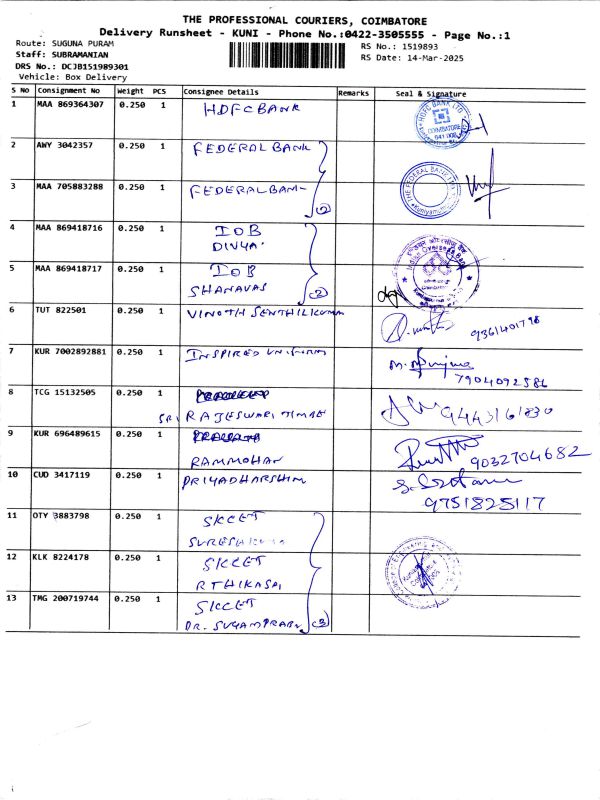 THE PROFESSIONAL COURIERS, COIMBATORE
Delivery Runsheet - KUNI - Phone No.:0422-3505555 - Page No.:1
Route: SUGUNA PURAM
Staff: SUBRAMANIAN
DRS No.: DCJB151989301
Vehicle: Box Delivery
RS No.: 1519893
RS Date: 14-Mar-2025
S No Consignment No Weight PCS Consignee Details Remarks Seal & Signature
1 MAA 869364307 0.250 1 HDFC BANK
HDFC BANK LTD
COIMBATORE
641 008
2 AWY 3042357 0.250 1 FEDERAL BANK
3 MAA 705883288 0.250 1 FEDERAL BANK
(2)
THE FEDERAL BANK LTD
4 MAA 869418716 0.250 1 IOB
DIVYA
5 MAA 869418717 0.250 1 IOB
SHANAVAS
(2)
Indian Overseas Bank
6 TUT 822501 0.250 1 VINOTH SENTHILKUMAR
9361401798
7 KUR 7002892881 0.250 1 INSPIRED UNIFORM
7904092586
8 TCG 15132505 0.250 1
SRI RAJESWARI TIMBE
9443161830
9 KUR 696489615 0.250 1
RAMMOHAN
9032704682
10 CUD 3417119 0.250 1 PRIYADHARSHINI
9751825117
11 OTY 3883798 0.250 1 SKCET
SURESH KUMAR
12 KLK 8224178 0.250 1 SKCET
RTHIKASAI
13 TMG 200719744 0.250 1 SKCET
DR. SUGANPRABU
(3)